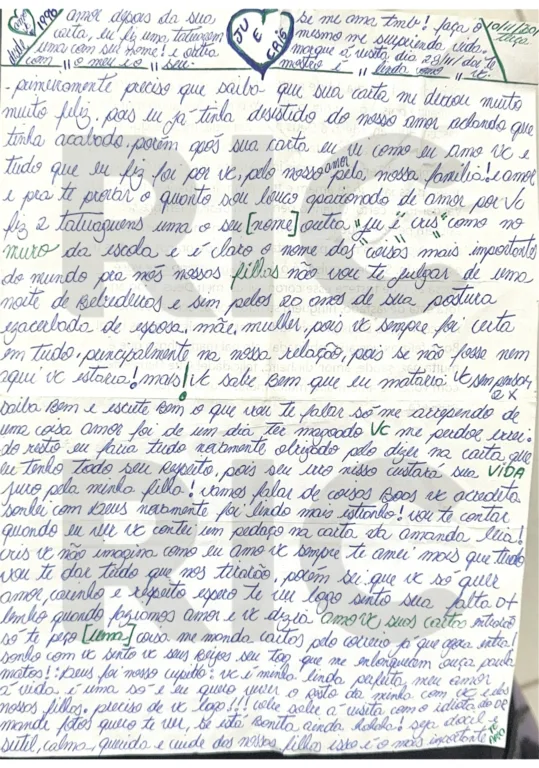 1996
amor depois da sua
carta, eu fiz uma tatuagem
uma com seu nome! e outra
com "o meu e o" seu.
JU
E
CRIS
Se me ama tmb! faça o
mesmo me surpreenda vida.
marque a visita dia 29/11/
mostre linda como vc.
10/11/201
terça
- primeiramente preciso que saiba que sua carta me deixou muito
muito feliz. pois eu já tinha desistido do nosso amor achando que
tinha acabado, porém após sua carta eu vi como eu amo vc e
tudo que eu fiz foi por vc, pelo nosso amor pela nossa família! e amor
e pra te provar o quanto sou louco apaixonado de amor por vc
fiz 2 tatuagens uma o seu [nome] outra "ju e cris" como no
muro da escola, e é claro o nome das coisas mais importantes
do mundo pra nós nossos filhos não vou te julgar de uma
noite de bebedeiras e sim pelos 20 anos de sua postura
exacerbada de esposa, mãe, mulher, pois vc sempre foi certa
em tudo, principalmente na nossa relação, pois se não fosse nem
aqui vc estaria! mais! vc sabe bem que eu mataria vc sem pensar
2x
saiba bem e escute bem o que vou te falar só me arrependo de
uma coisa amor foi de um dia ter magoado VC me perdoe errei.
do resto eu faria tudo novamente obrigado pelo dizer na carta que
eu tenho todo seu respeito, pois seu erro nisso custará sua VIDA
juro pela minha filha! vamos falar de coisas boas vc acredita
sonhei com Deus novamente foi lindo mais estranho! vou te contar
quando eu ver vc contei um pedaço na carta da amanda leia!
cris vc não imagina como eu amo vc sempre te amei mais que tudo
vou te dar tudo que nos tiraram, porém sei que vc só quer
amor, carinho e respeito espero te ver logo sinto sua falta
lembro quando fazíamos amor e vc dizia amo vc suas cartas
só te peço [uma] coisa me manda cartas pelo correio já que agora entra!
sonho com vc sinto vc seus beijos seu toq que me enlouqueciam ouça paula
matos! Deus foi nosso cupido: vc é minha linda perfeita, meu amor
a vida é uma só e eu quero viver o resto da minha com vc e dos
nossos filhos. preciso de vc logo!!! vc a visita com o idiota do
mande fotos quero te ver, se está bonita ainda hahaha! seja docil e
sutil, calma, querida e cuide dos nossos filhos isso é o mais importante
RIC
RIC